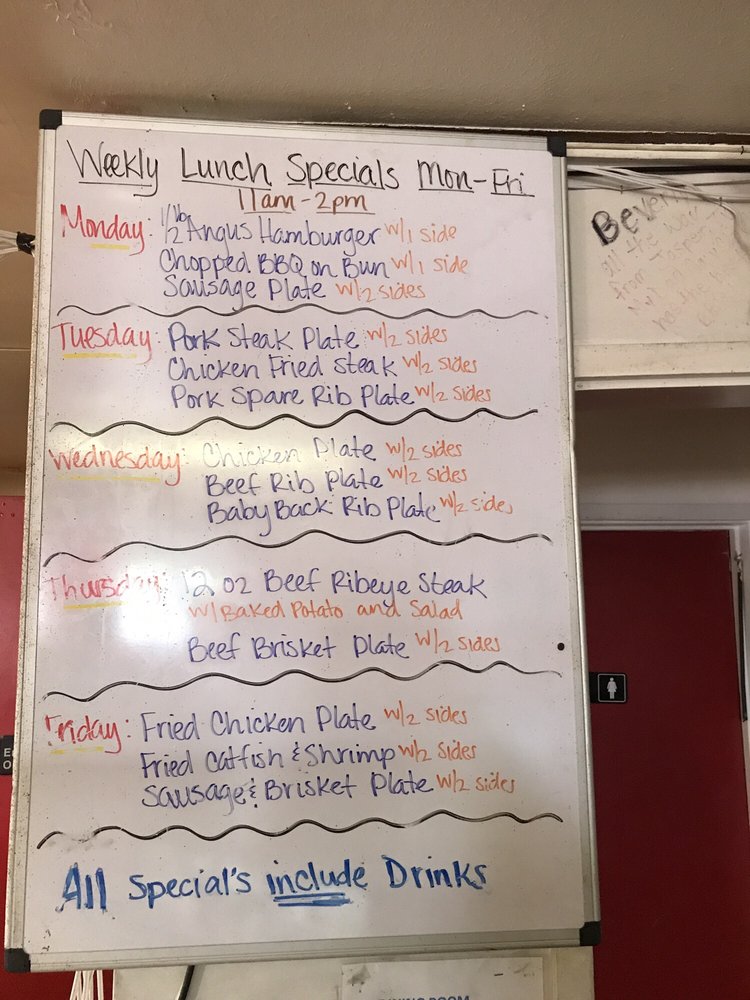 Weekly Lunch Specials Mon-Fri
11am-2pm
Monday: 1/2 lb Angus Hamburger w/1 side
Chopped BBQ on Bun w/1 side
Sausage Plate w/2 sides
Tuesday: Pork Steak Plate w/2 sides
Chicken Fried Steak w/2 sides
Pork Spare Rib Plate w/2 sides
Wednesday: Chicken Plate w/2 sides
Beef Rib Plate w/2 sides
Baby Back Rib Plate w/2 sides
Thursday: 12 oz Beef Ribeye Steak
w/ Baked Potato and Salad
Beef Brisket Plate w/2 sides
Friday: Fried Chicken Plate w/2 sides
Fried Catfish & Shrimp w/2 sides
Sausage & Brisket Plate w/2 sides
All Special's include Drinks
all the way
from
DINING ROOM